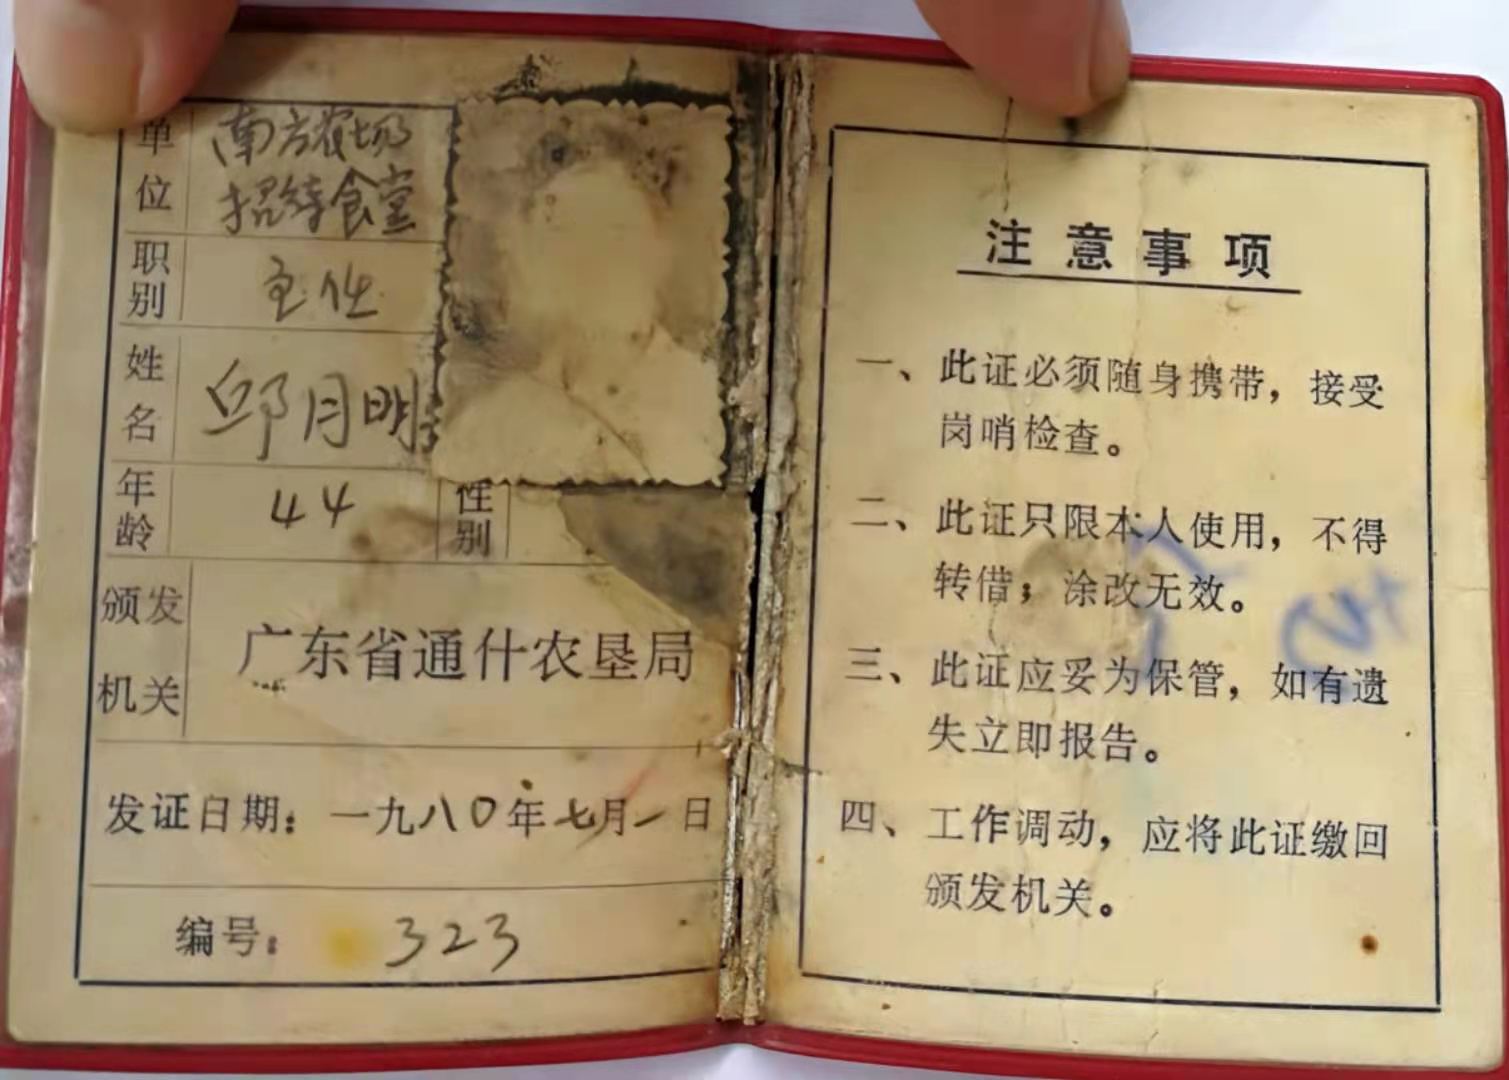 单位 南方农场
招待食堂
职别 主任
姓名 邱月明
年龄 44 性别
颁发机关 广东省通什农垦局
发证日期：一九八〇年七月一日
编号：323
注意事项
一、此证必须随身携带，接受
岗哨检查。
二、此证只限本人使用，不得
转借；涂改无效。
三、此证应妥为保管，如有遗
失立即报告。
四、工作调动，应将此证缴回
颁发机关。